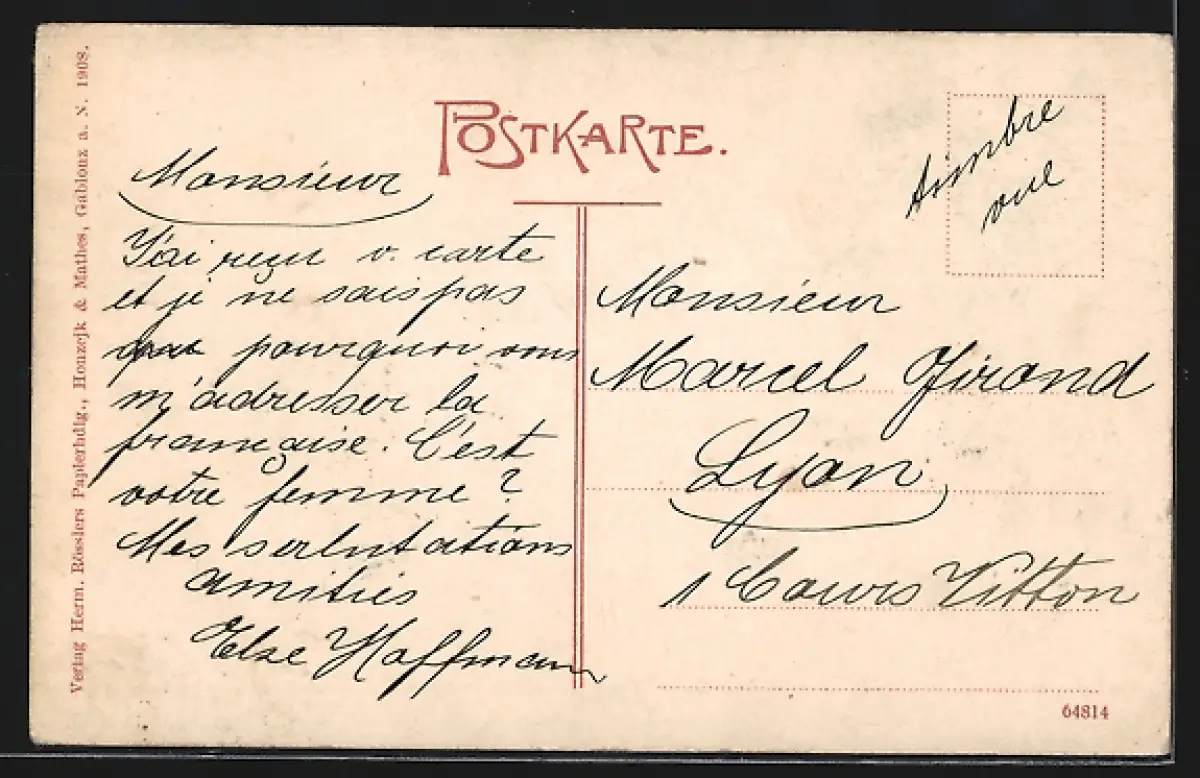 Verlag Herm. Rösslers Papierhdlg., Honzejk & Mathes, Gablonz a. N. 1908.
POSTKARTE.
timbre
vue
Monsieur
J'ai reçu v. carte
et je ne sais pas
pourquoi vous
m'adresser la
française. C'est
votre femme?
Mes salutations
amitiés
Else Hoffmann
Monsieur
Marcel Girond
Lyon
1 Cours Vitton
64814